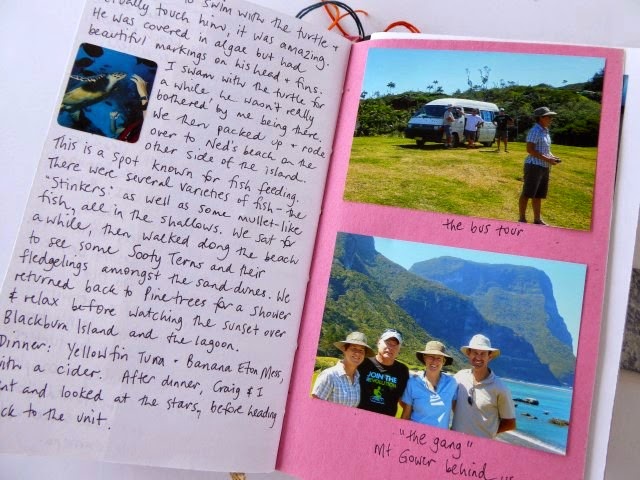 to swim with the turtle +
actually touch him, it was amazing.
He was covered in algae but had
beautiful markings on his head + fins.
I swam with the turtle for
a while he wasn't really
bothered by me being there,
We then packed up + rode
over to Ned's beach on the
other side of the island.
This is a spot known for fish feeding.
There were several varieties of fish - the
"Stinkers" as well as some mullet-like
fish, all in the shallows. We sat for
a while, then walked along the beach
to see some Sooty Terns and their
fledgelings amongst the sand dunes. We
returned back to Pinetrees for a shower
& relax before watching the sunset over
Blackburn Island and the lagoon.
Dinner: Yellowfin Tuna + Banana Eton Mess,
with a cider. After dinner, Craig & I
and looked at the stars, before heading
to the unit.
the bus tour
JOIN THE
"the gang"
Mt Gower behind us